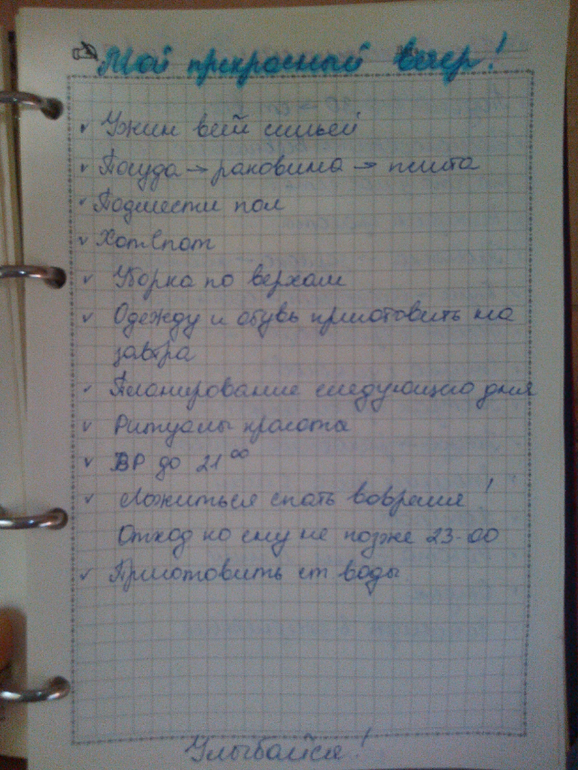 Мой прекрасный вечер!
Ужин всей семьей
Посуда → раковина → плита
Подмести пол
ХотСпот
Уборка по верхам
Одежду и обувь приготовить на
завтра
Планирование следующего дня
Ритуалы красоты
ВР до 21 00
Ложиться спать вовремя!
Отход ко сну не позже 23-00
Приготовить ст воды
Улыбайся!